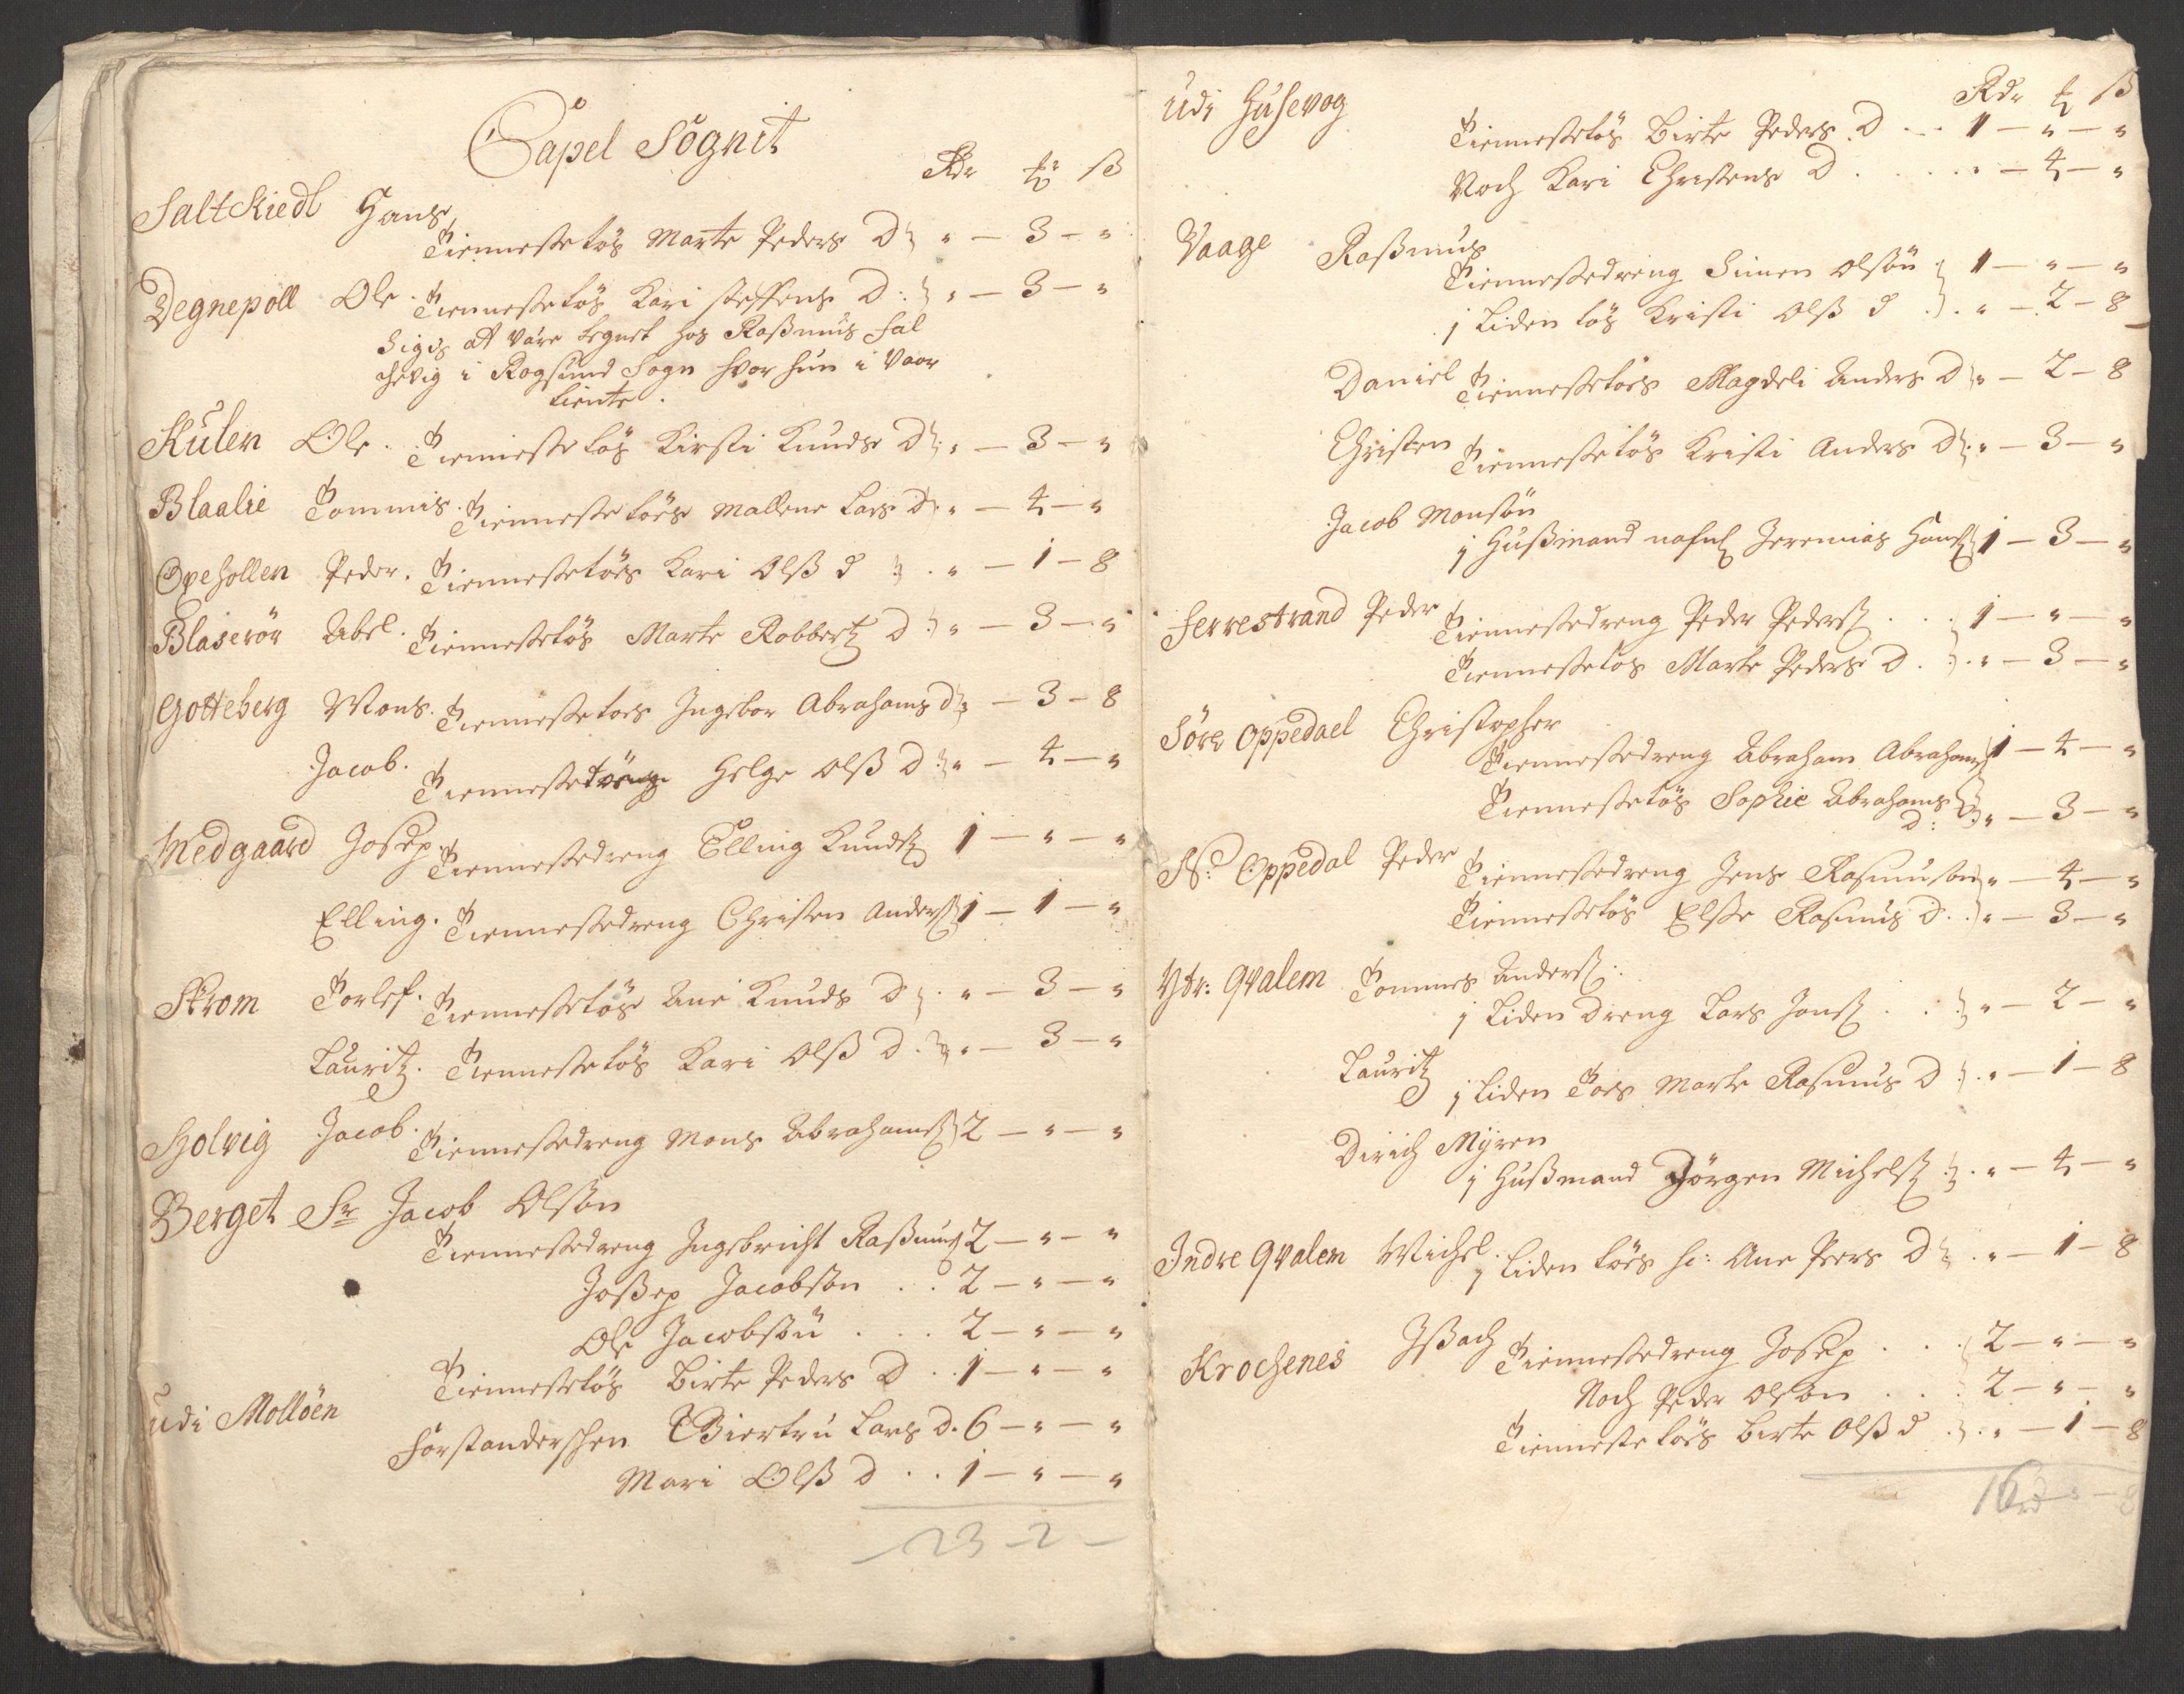 Capel Sögnit
Rdr ß
Saltskiedl Hans
Tienneste tös Marte Peders D " — 3 — "
Degnepoll Ole. Tienneste tös Kari Steffens D: " — 3 — "
Siges at være legnet hos Raßmus Fal
chevig i Rogsund Sogn hvor hun i Vaor
tiente.
Skulen Ole. Tienneste tös Kirsti Knuds D: " — 3 — "
Blaalie Tommis. Tienneste töes Mallene Lars D " — 4 — "
Opehollen Peder. Tienneste töes Kari Olß d " — 1 — 8
Blaserör Abel. Tienneste tös Marte Robbertz D: " — 3 — "
Gotteberg Mons. Tienneste toes Ingebor Abrahams d — 3 — 8
Jacob. Tienneste Helge Olß D " — 4 — "
Medgaard Josep. Tiennestedreng Elling Knudß 1 — " — "
Elling. Tiennestedreng Christen Anderß 1 — 1 — "
Strom Torlef. Tienneste töes Ane Knuds D " — 3 — "
Lauritz. Tienneste tös Kari Olß D. " — 3 — "
Holvig Jacob. Tiennestedreng Mons Abrahamß 2 — " — "
Berget Sr Jacob Olson
Tiennestedreng Ingebricht Raßmuß 2 — " — "
Joßep Jacobson . . 2 — " — "
Ole Jacobsön . . . 2 — " — "
Tienneste tös Birte Peders D . . 1 — " — "
udi Molloën
Forstanderschen Biertru Lars d. 6 — " — "
Mari Olß D . . 1 — " — "
— 23 — 2 —
udi Husevog
Rdr ß
Tienneste tös Birte Peders D . . 1 — " — "
Noch Kari Christens D . . . . " — 4 — "
Vaage Raßmus
Tiennestedreng Simen Olsön 1 — " — "
1 Liden tös Kristi Olß d . " — 2 — 8
Daniel Tienneste toes Magdeli Anders D " — 2 — 8
Christen Tienneste tös Kristi Anders D: " — 3 — "
Jacob Monsön
1 Hußmand nafnl Jeremias Hanß 1 — 3 — "
Ferrestrand Peder Tiennestedreng Peder Pederß . . . 1 — " — "
Tienneste tos Marte Peders D. . " — 3 — "
Söre Oppedael Christopher
Tiennestedreng Abraham Abrahamß 1 — 4 — "
Tienneste tös Sophie Abrahams
D: " — 3 — "
N: Oppedal Peder Tiennestedreng Jens Rasmuson " — 4 — "
Tienneste tös Elße Rasmus D. . " — 3 — "
Ytr: Qvalem Tommes Anderß.
1 Liden Dreng Lars Jonß . . " — 2 — "
Lauritz
1 Liden Toes Marte Rasmus D . " — 1 — 8
Dirich Myren
1 Hußmand Jörgen Michelß . " — 4 — "
Indre Qvalem Michel. 1 Liden töes h: Ane Peers D . " — 1 — 8
Krochenes Ißach Tiennestedreng Josep . . . 2 — " — "
Noch Peder Olson . . 2 — " — "
Tienneste töes Birte Olß d . " — 1 — 8
16 rd — " — 8